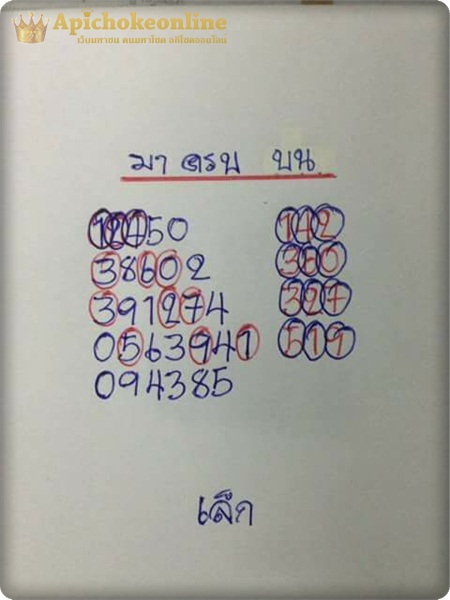 Apichokeonline
เว็บมหาชน คนมหาโชค อภิโชคออนไลน์
มา ครบ บน
12450 142
38602 360
391274 327
0563941 519
094385
เล็ก